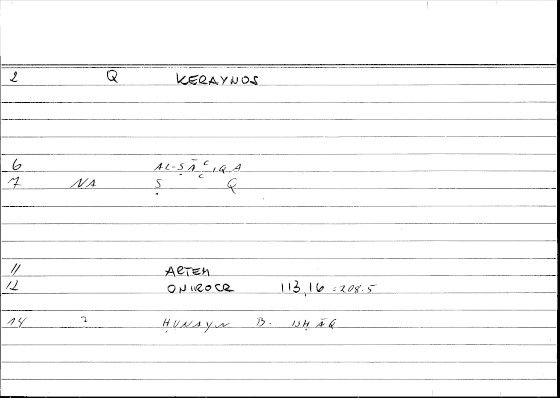 2 Q KERAYNOS
6 AL-ṢĀʿIQA
7 NA Ṣ ʿ Q
11 ARTEM
12 ONIROCR 113,16 = 208.5
14 ? ḤUNAYN B. ISḤĀQ